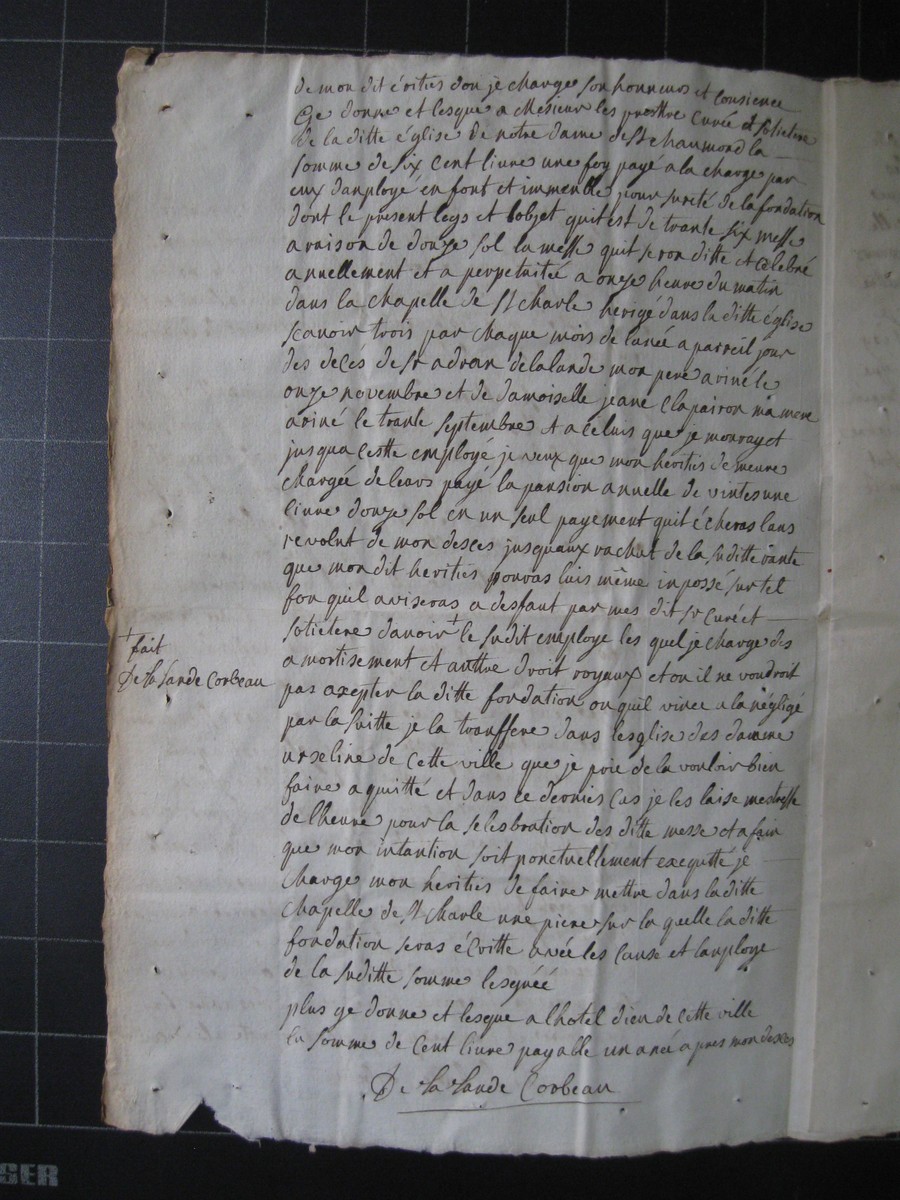 de mon dit éritiés don je charge son honneur et consience
Ge donne et lesque a Mesieur les prestre curée et sotietere
de la ditte église de notre dame de St chaumond la
somme de six cent livre une foy payé a la charge par
eux danployé en font et immeuble pour sureté de la fondation
dont le present legs et lobjet quit est de trante six messe
a raison de douze sol la messe quit seron ditte et célébré
annuellement et a perpetuitée a onze heure du matin
dans la chapelle de St charle herigé dans la ditte église
scavoir trois par chaque mois de lanée a pareil jour
des deces de Sr adrian delalande mon pere arivé le
onze novembre et de damoiselle jeane Clapairon ma mere
arivé le trante septembre et a celuis que je mouray et
jusqua cestte employé je veux que mon heritiés demeure
chargée de leurs payé la pansion annuelle de vintes une
livre douze sol en un seul payement quit écheras lans
revolut de mon desces jusquaux rachat de la suditte rante
que mon dit heritiés pouras luis même inposse sur tel
fon quil aviseras a desfaut par mes dit sr curé et
sotietere davoir + le sudit employe les quel je charge des
amortisement et auttre droit royaux et ou il ne voudroit
pas axepter la ditte fondation ou quil vince a la négligé
par la suitte je la transfere dans lesglise des damme
urseline de cette ville que je prie de la vouloir bien
faire aquitté et dans ce dernies cas je les laise mestresse
de lheure pour la selesbration des ditte messe et a fain
que mon intantion soit ponctuellement exequtté je
charge mon heritiés de faire mettre dans la ditte
chapelle de St charle une piere sur la quelle la ditte
fondation seras écritte avée les cause et lanploye
de la suditte somme lesguée
plus ge donne et lesque a lhotel dieu de cette ville
la somme de cent livre payable un aneé apres mon desces
De la Lande Corbeau
+ fait
De la Lande Corbeau
SER